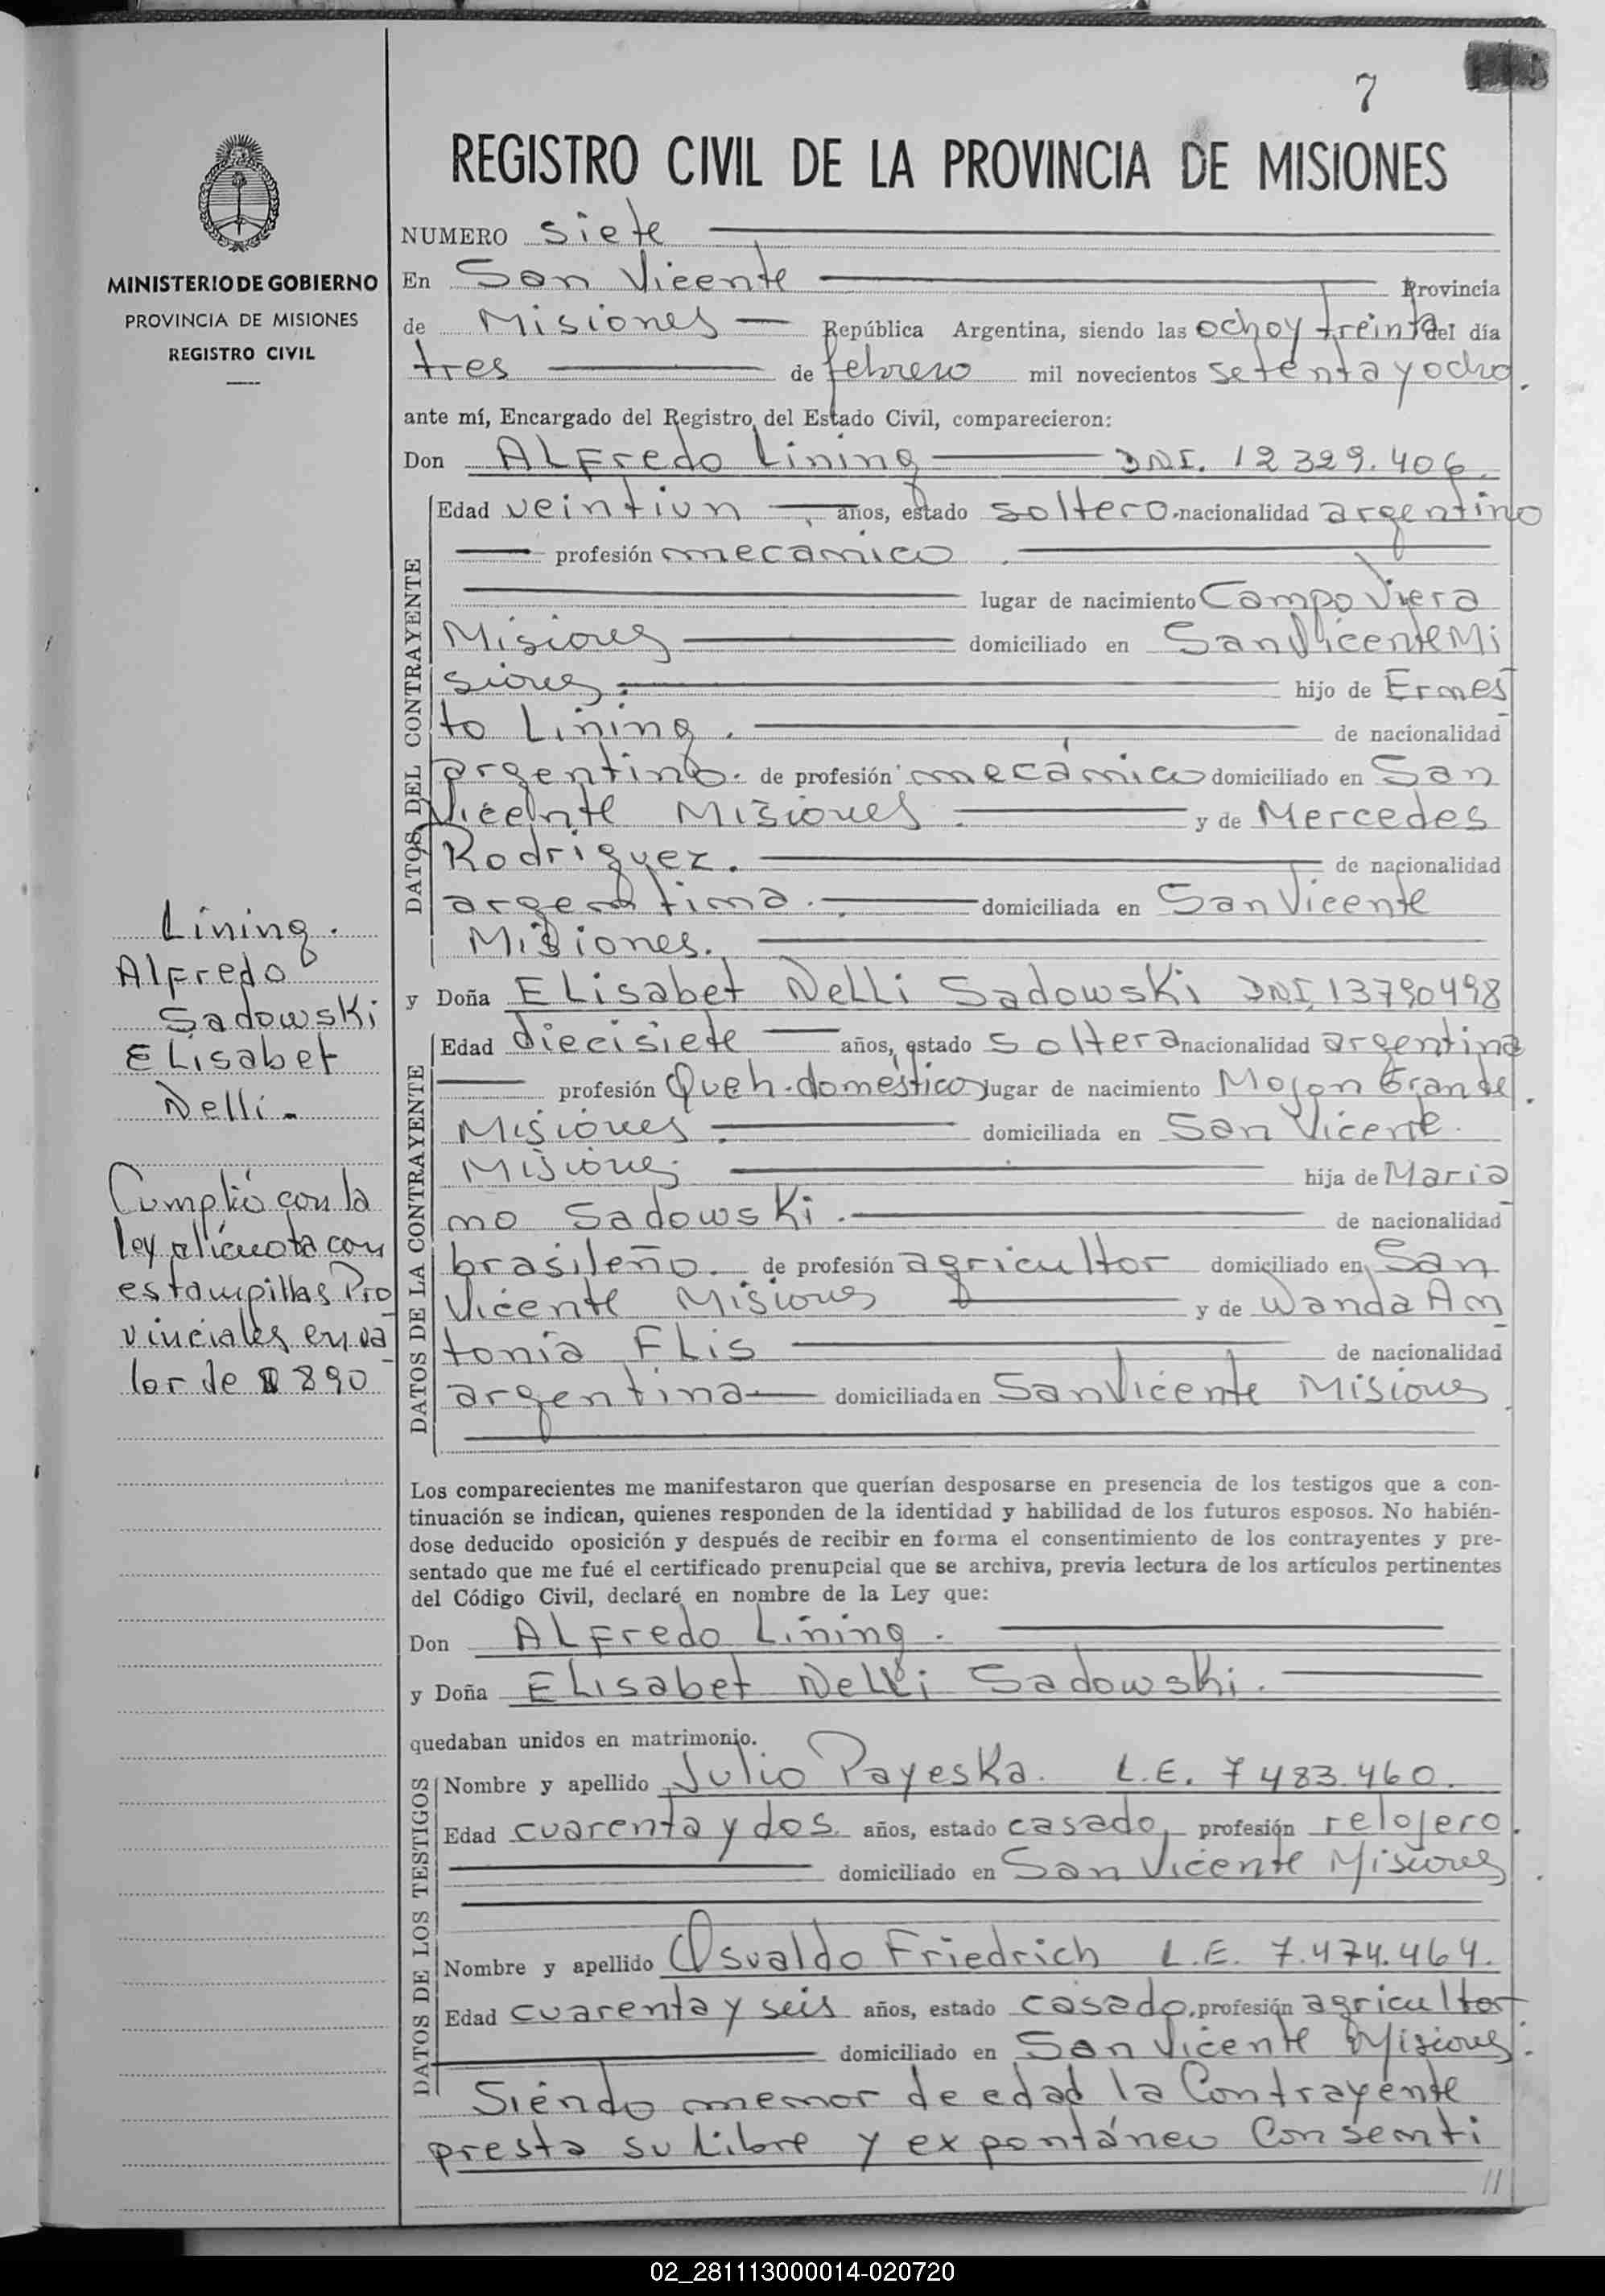 7
REGISTRO CIVIL DE LA PROVINCIA DE MISIONES
MINISTERIO DE GOBIERNO
PROVINCIA DE MISIONES
REGISTRO CIVIL
NUMERO siete
En San Vicente Provincia
de Misiones República Argentina, siendo las ocho y treinta del día
tres de febrero mil novecientos setenta y ocho.
ante mí, Encargado del Registro del Estado Civil, comparecieron:
Don ALFredo Lining DNI. 12329.406.
DATOS DEL CONTRAYENTE
Edad veintiun años, estado soltero nacionalidad argentino
profesión mecanico
lugar de nacimiento Campo Viera
Misiones domiciliado en San Vicente Mi
siones. hijo de Ernes
to Lining. de nacionalidad
argentino. de profesión mecánico domiciliado en San
Vicente Misiones. y de Mercedes
Rodriguez. de nacionalidad
argentina. domiciliada en San Vicente
Misiones.
Lining.
Alfredo
Sadowski
ELisabet
Nelli.
Cumplió con la
ley alícuota con
estampillas Pro
vinciales en va
lor de $ 890
y Doña ELisabet Nelli Sadowski DNI, 13790498
DATOS DE LA CONTRAYENTE
Edad diecisiete años, estado soltera nacionalidad argentina
profesión Queh. domésticos lugar de nacimiento Mojon Grande.
Misiones. domiciliada en San Vicente.
Misiones. hija de Maria
no Sadowski. de nacionalidad
brasileño. de profesión agricultor domiciliado en San
Vicente Misiones y de Wanda An
tonia FLis de nacionalidad
argentina domiciliada en San Vicente Misiones
Los comparecientes me manifestaron que querían desposarse en presencia de los testigos que a con-
tinuación se indican, quienes responden de la identidad y habilidad de los futuros esposos. No habién-
dose deducido oposición y después de recibir en forma el consentimiento de los contrayentes y pre-
sentado que me fué el certificado prenupcial que se archiva, previa lectura de los artículos pertinentes
del Código Civil, declaré en nombre de la Ley que:
Don ALFredo Lining.
y Doña ELisabet Nelli Sadowski.
quedaban unidos en matrimonio.
DATOS DE LOS TESTIGOS
Nombre y apellido Julio Payeska. L.E. 7483.460.
Edad cuarenta y dos. años, estado casado, profesión relojero.
domiciliado en San Vicente Misiones.
Nombre y apellido Osvaldo Friedrich L.E. 7.474.464.
Edad cuarenta y seis años, estado casado. profesión agricultor
domiciliado en San Vicente Misiones.
Siendo menor de edad la Contrayente
presta su Libre y expontáneo Consenti
//
02_281113000014-020720